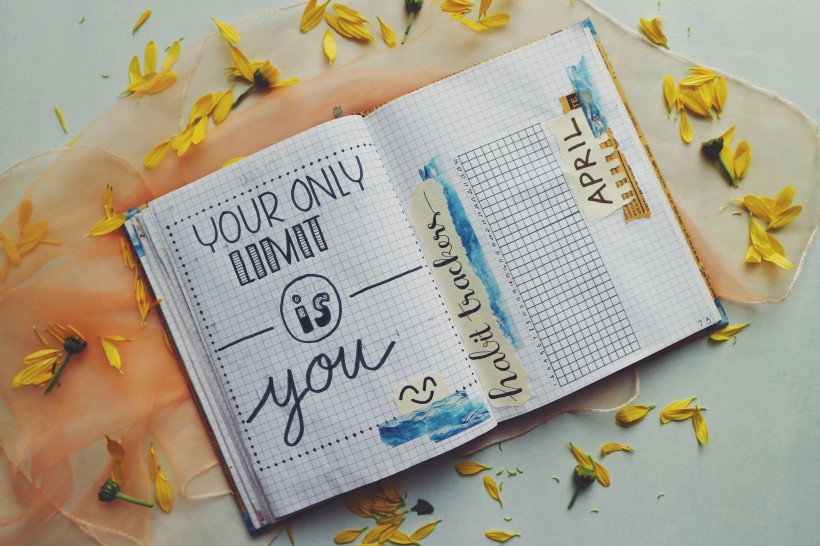 YOUR ONLY
LIMIT
is
you
habit trackers
APRIL
73